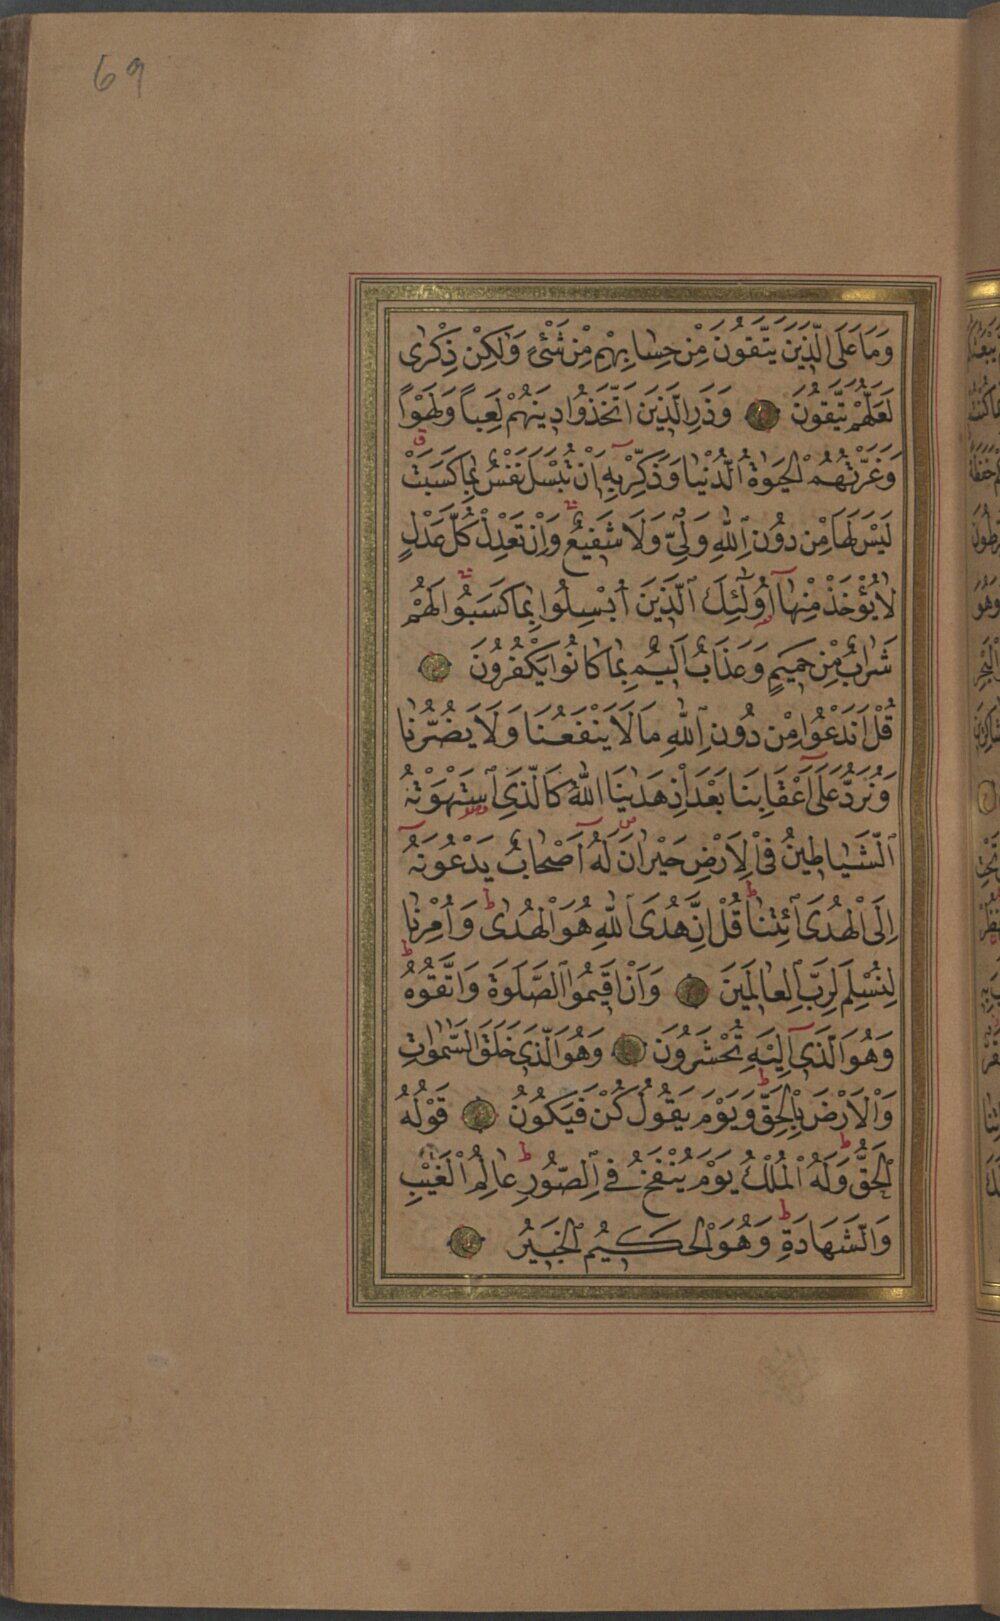 69
وَمَا عَلَى الَّذِينَ يَتَّقُونَ مِنْ حِسَابِهِمْ مِنْ شَىْءٍ وَلٰكِنْ ذِكْرٰى
لَعَلَّهُمْ يَتَّقُونَ وَذَرِ الَّذِينَ اتَّخَذُوا دِينَهُمْ لَعِباً وَلَهْواً
وَغَرَّتْهُمُ الْحَيٰوةُ الدُّنْيَا وَذَكِّرْ بِهِ اَنْ تُبْسَلَ نَفْسٌ بِمَا كَسَبَتْ
لَيْسَ لَهَا مِنْ دُونِ اللّٰهِ وَلِىٌّ وَلَا شَفِيعٌ وَاِنْ تَعْدِلْ كُلَّ عَدْلٍ
لَا يُؤْخَذْ مِنْهَا اُولٰئِكَ الَّذِينَ اُبْسِلُوا بِمَا كَسَبُوا لَهُمْ
شَرَابٌ مِنْ حَمِيمٍ وَعَذَابٌ اَلِيمٌ بِمَا كَانُوا يَكْفُرُونَ
قُلْ اَنَدْعُوا مِنْ دُونِ اللّٰهِ مَا لَا يَنْفَعُنَا وَلَا يَضُرُّنَا
وَنُرَدُّ عَلٰى اَعْقَابِنَا بَعْدَ اِذْ هَدٰينَا اللّٰهُ كَالَّذِى اسْتَهْوَتْهُ
الشَّيَاطِينُ فِى الْاَرْضِ حَيْرَانَ لَهُ اَصْحَابٌ يَدْعُونَهُ
اِلَى الْهُدَى ائْتِنَا قُلْ اِنَّ هُدَى اللّٰهِ هُوَ الْهُدٰى وَاُمِرْنَا
لِنُسْلِمَ لِرَبِّ الْعَالَمِينَ وَاَنْ اَقِيمُوا الصَّلٰوةَ وَاتَّقُوهُ
وَهُوَ الَّذِى اِلَيْهِ تُحْشَرُونَ وَهُوَ الَّذِى خَلَقَ السَّمٰوَاتِ
وَالْاَرْضَ بِالْحَقِّ وَيَوْمَ يَقُولُ كُنْ فَيَكُونُ قَوْلُهُ
الْحَقُّ وَلَهُ الْمُلْكُ يَوْمَ يُنْفَخُ فِى الصُّورِ عَالِمُ الْغَيْبِ
وَالشَّهَادَةِ وَهُوَ الْحَكِيمُ الْخَبِيرُ